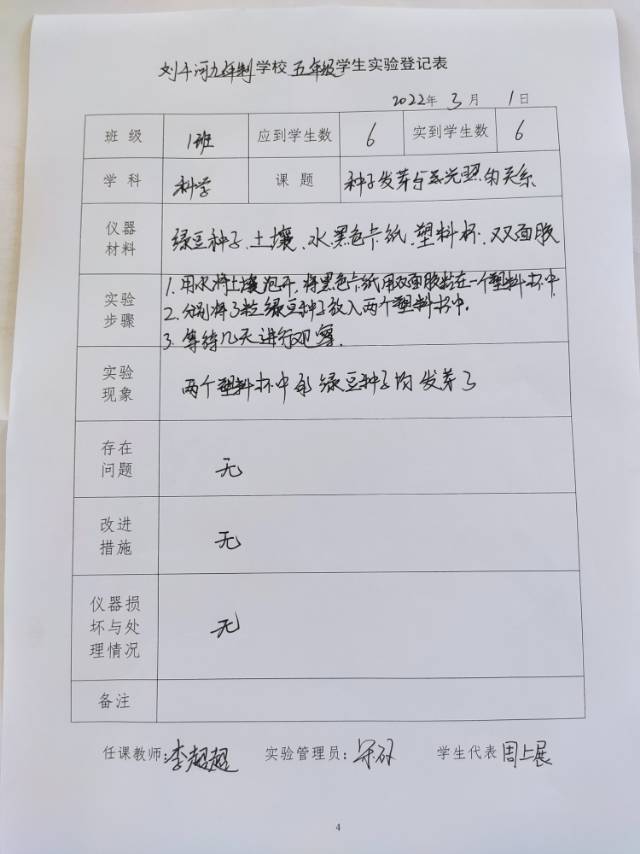 刘千河九年制学校五年级学生实验登记表
2022年 3月 1日
班级 1班 应到学生数 6 实到学生数 6
学科 科学 课题 种子发芽与光照的关系
仪器材料 绿豆种子、土壤、水、黑色卡纸、塑料杯、双面胶
实验步骤 1. 用水将土壤泡开,将黑色卡纸用双面胶粘在一个塑料杯中
2. 分别将3粒绿豆种子放入两个塑料杯中.
3. 等待几天进行观察.
实验现象 两个塑料杯中的绿豆种子均发芽了
存在问题 无
改进措施 无
仪器损坏与处理情况 无
备注
任课教师:李超超 实验管理员: 学生代表 周上展
4